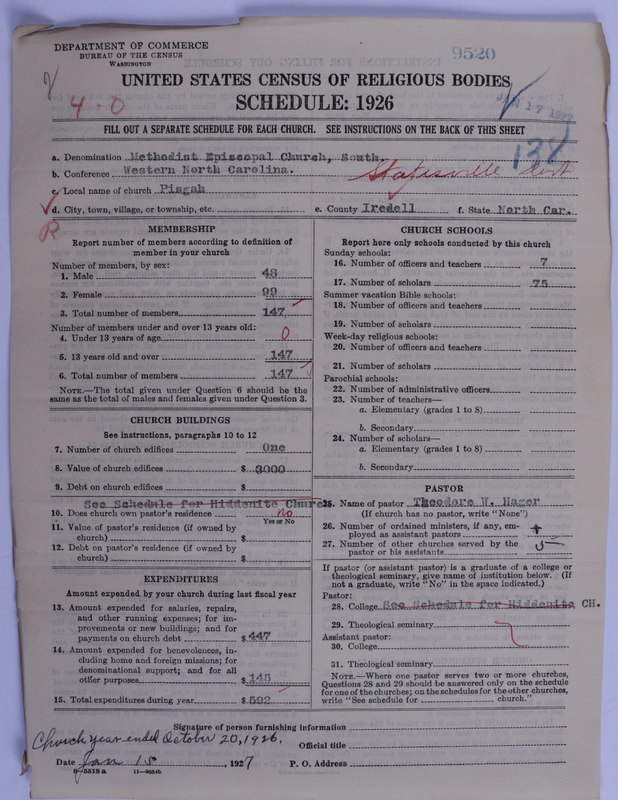 DEPARTMENT OF COMMERCE
BUREAU OF THE CENSUS
WASHINGTON
9520
UNITED STATES CENSUS OF RELIGIOUS BODIES
4-0
SCHEDULE: 1926
JAN 17 1927
FILL OUT A SEPARATE SCHEDULE FOR EACH CHURCH. SEE INSTRUCTIONS ON THE BACK OF THIS SHEET
138
a. Denomination Methodist Episcopal Church, South.
b. Conference Western North Carolina.
Statesville dist
c. Local name of church Pisgah
d. City, town, village, or township, etc. e. County Iredell f. State North Car.
R
MEMBERSHIP
Report number of members according to definition of
member in your church
Number of members, by sex:
1. Male 48
2. Female 99
3. Total number of members 147
Number of members under and over 13 years old:
4. Under 13 years of age 0
5. 13 years old and over 147
6. Total number of members 147
NOTE.—The total given under Question 6 should be the
same as the total of males and females given under Question 3.
CHURCH BUILDINGS
See instructions, paragraphs 10 to 12
7. Number of church edifices One
8. Value of church edifices $ 3000
9. Debt on church edifices $
See Schedule for Hiddenite Church
10. Does church own pastor's residence no
Yes or No
11. Value of pastor's residence (if owned by
church) $
12. Debt on pastor's residence (if owned by
church) $
EXPENDITURES
Amount expended by your church during last fiscal year
13. Amount expended for salaries, repairs,
and other running expenses; for im-
provements or new buildings; and for
payments on church debt $ 447
14. Amount expended for benevolences, in-
cluding home and foreign missions; for
denominational support; and for all
other purposes $ 145
15. Total expenditures during year $ 592
CHURCH SCHOOLS
Report here only schools conducted by this church
Sunday schools:
16. Number of officers and teachers 7
17. Number of scholars 75
Summer vacation Bible schools:
18. Number of officers and teachers
19. Number of scholars
Week-day religious schools:
20. Number of officers and teachers
21. Number of scholars
Parochial schools:
22. Number of administrative officers
23. Number of teachers—
a. Elementary (grades 1 to 8)
b. Secondary
24. Number of scholars—
a. Elementary (grades 1 to 8)
b. Secondary
PASTOR
25. Name of pastor Theodore W. Hager
(If church has no pastor, write "None")
26. Number of ordained ministers, if any, em-
ployed as assistant pastors
27. Number of other churches served by the
pastor or his assistants 5
If pastor (or assistant pastor) is a graduate of a college or
theological seminary, give name of institution below. (If
not a graduate, write "No" in the space indicated.)
Pastor:
28. College See Schedule for Hiddenite CH.
29. Theological seminary
Assistant pastor:
30. College
31. Theological seminary
NOTE.—Where one pastor serves two or more churches,
Questions 28 and 29 should be answered only on the schedule
for one of the churches; on the schedules for the other churches,
write "See schedule for church."
Signature of person furnishing information
Church year ended October 20, 1926.
Official title
Date Jan 15, 1927 P. O. Address